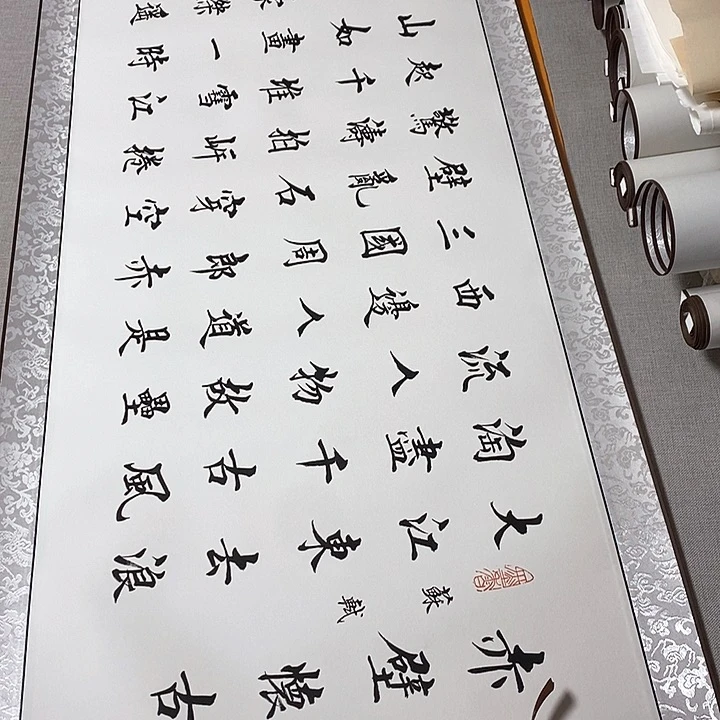 赤壁懷古
蘇軾
大江東去浪
淘盡千古風
流人物故壘
西邊人道是
三國周郎赤
壁亂石穿空
驚濤拍岸捲
起千堆雪江
山如畫一時
傑遙